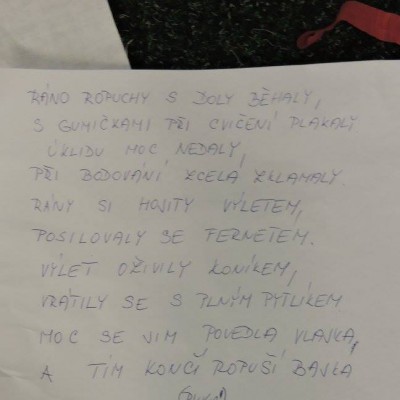 RÁNO ROPUCHY S DOLY BĚHALY,
S GUMIČKAMI PŘI CVIČENÍ PLAKALY
ÚKLIDU MOC NEDALY,
PŘI BODOVÁNÍ ZCELA ZKLAMALY.
RÁNY SI HOJILY VÝLETEM,
POSILOVALY SE FERNETEM.
VÝLET OŽIVILY KONÍKEM,
VRÁTILY SE S PLNÝM PYTLÍKEM
MOC SE JIM POVEDLA VLAJKA,
A TÍM KONČÍ ROPUŠÍ BAJKA